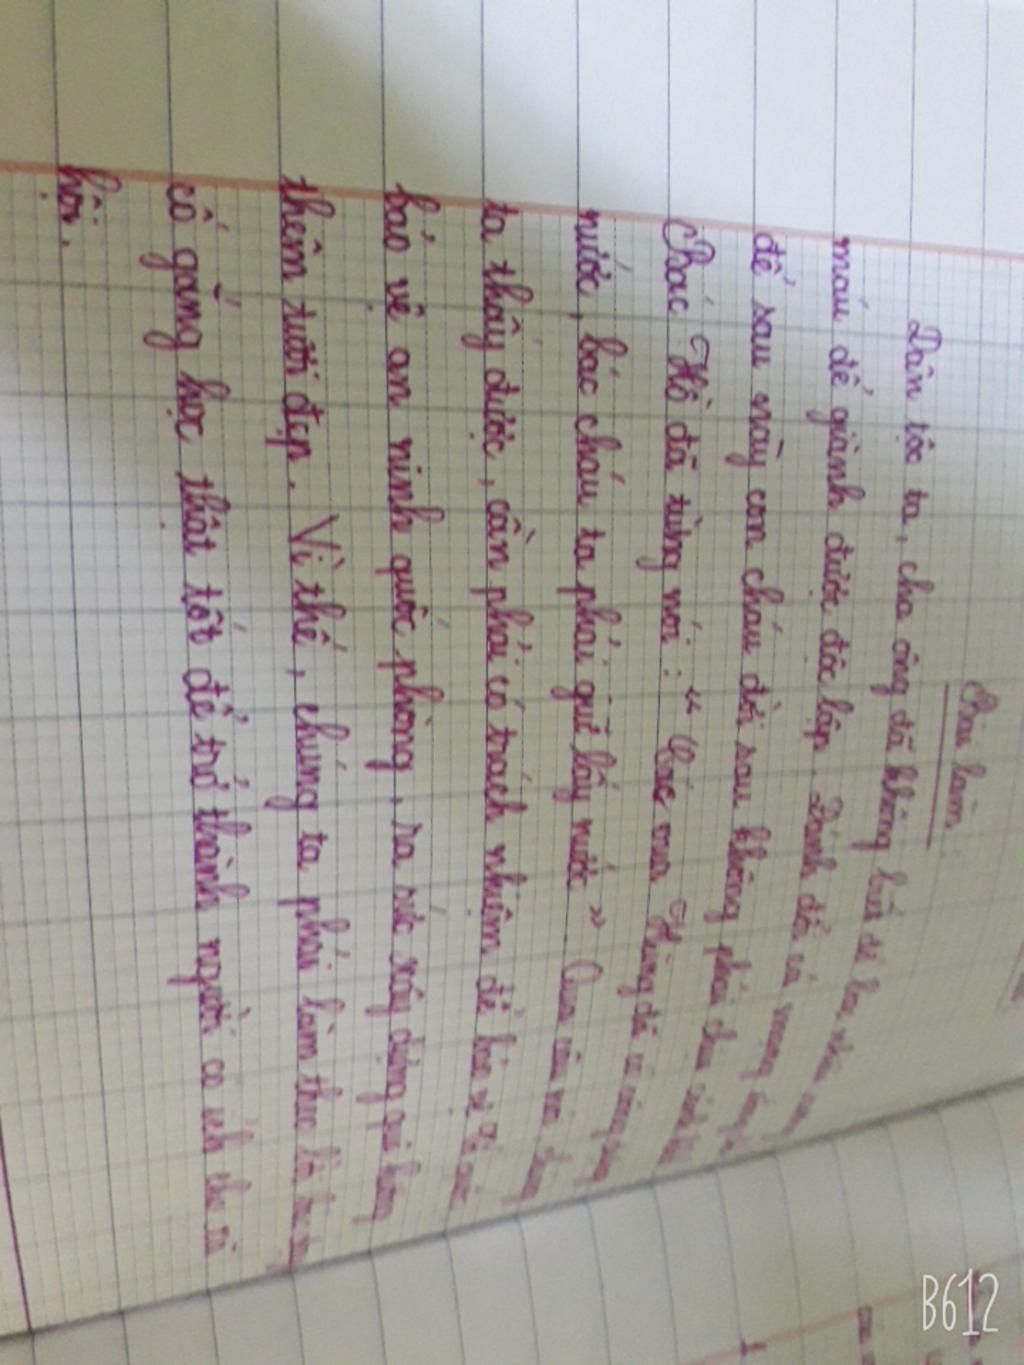 Bài làm:
Dân tộc ta, cha ông đã không
máu để giành được độc lập. Đánh đổi cả
để sau này con cháu đời sau không phải chịu cảnh
Bác Hồ đã từng nói: "Các vua Hùng đã có công dựng
nước, bác cháu ta phải giữ lấy nước" Qua câu nói, chúng
ta thấy được, cần phải có trách nhiệm để bảo vệ
bảo vệ an ninh quốc phòng, ra sức xây dựng quê hương
thêm tươi đẹp. Vì thế, chúng ta phải làm theo lời
cố gắng học thật tốt để trở thành người có ích cho xã
hội.
B612